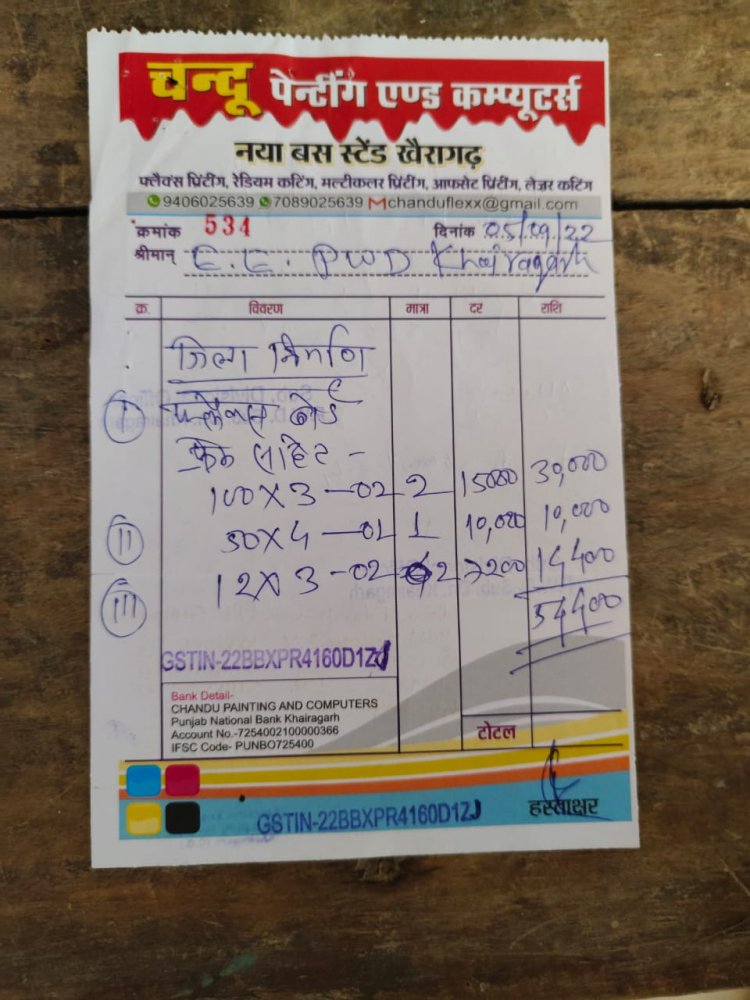 चन्दू पेन्टींग एण्ड कम्प्यूटर्स
नया बस स्टेंड खैरागढ़
फ्लैक्स प्रिंटींग, रेडियम कटिंग, मल्टीकलर प्रिंटींग, आफसेट प्रिंटींग, लेजर कटिंग
9406025639 7089025639 chanduflexx@gmail.com
क्रमांक 534 दिनांक 05/09/22
श्रीमान् E.E. PWD Khairagarh
क्र. विवरण मात्रा दर राशि
जिला निर्माण
I फ्लैक्स बोर्ड
फ्रेम सहित -
100X3-02 2 15000 30,000
II 50X4-01 1 10,000 10,000
III 12X3-02 2 7200 14400
54400
GSTIN-22BBXPR4160D1ZJ
Bank Detail-
CHANDU PAINTING AND COMPUTERS
Punjab National Bank Khairagarh
Account No.-7254002100000366
IFSC Code- PUNBO725400
टोटल
हस्ताक्षर
GSTIN-22BBXPR4160D1ZJ